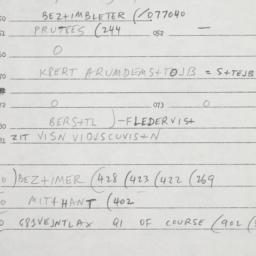 50 BEZ+IMBLETER (/077040
51 PRUTEES (244 052 —
60 0
70 KBERT ARUMDEMS+TOJB = S+TEJB
72 0 073 0
80 BERS+TL )-FLEDERVIS+
81 ZIT VISN VIOUSCUVIS+N
0 )BEZ+IMER (428 (423 (422 (269
0 MIT+HANT (402
0 GP3VEJNTLAX QI OF COURSE (902 (